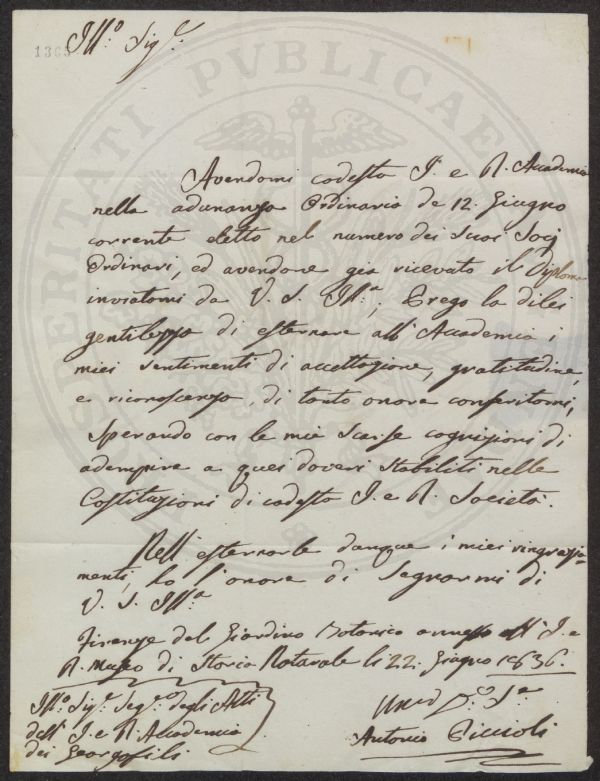 1365
Ill.º Sig.ʳ
Avendomi codesta I. e R. Accademia
nella adunanza Ordinaria de 12. Giugno
corrente eletto nel numero dei Suoi Socj
Ordinari, ed avendone già ricevuto il Diploma
inviatomi da V. S. Ill.ª, Prego la di lei
gentilezza di esternare all'Accademia i
miei sentimenti di accettazione, gratitudine,
e riconoscenza, di tanto onore conferitomi,
sperando con le mie scarse cognizioni di
adempire a quei doveri stabiliti nelle
Costituzioni di codesta I. e R. Società.
Nell'esternarle dunque i miei ringrazia-
menti, ho l'onore di Segnarmi di
V. S. Ill.ª
Firenze dal Giardino Botanico annesso all'I. e
R. Museo di Storia Naturale li 22. Giugno 1836.
Ill.º Sig.ʳ Seg.º degli Atti
dell'I. e R. Accademia
dei Georgofili
Um.º D.º S.ᵉ
Antonio Piccioli
PROSPERITATI PVBLICAE